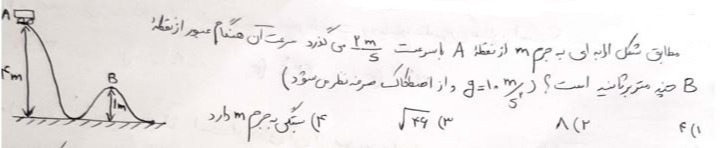 A
B
۴m
1m
مطابق شکل ارابه ای به جرم m از نقطهٔ A با سرعت ۲ m/s می گذرد سرعت آن هنگام عبور از نقطهٔ
B چند متر بر ثانیه است؟ (g=۱۰ m/s² و از اصطکاک صرفه نظر می شود)
۴ (۱ ۸ (۲ √۴۶ (۳ ۴) بستگی به جرم m دارد